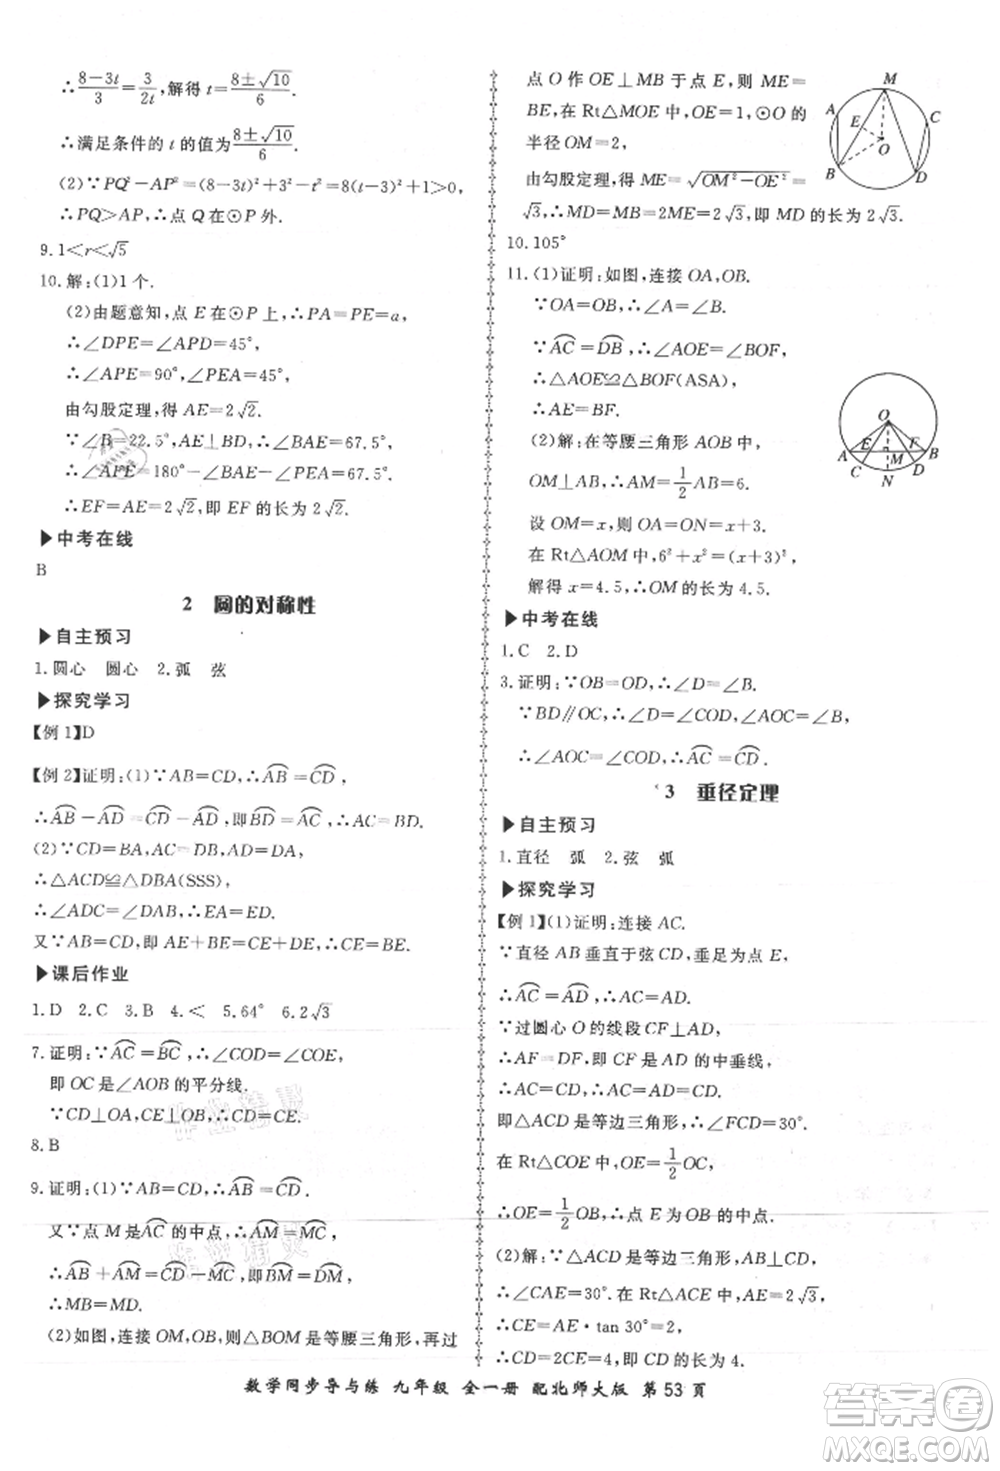 ∴(8-3t)/3=3/(2t),解得 t=(8±√10)/6.
∴满足条件的 t 的值为(8±√10)/6.
(2)∵PQ²-AP²=(8-3t)²+3²-t²=8(t-3)²+1>0,
∴PQ>AP,∴点 Q 在⊙P 外.
9.1<r<√5
10.解:(1)1个.
(2)由题意知,点 E 在⊙P 上,∴PA=PE=a,
∴∠DPE=∠APD=45°,
∴∠APE=90°,∠PEA=45°,
由勾股定理,得 AE=2√2.
∵∠B=22.5°,AE⊥BD,∴∠BAE=67.5°,
∴∠APE=180°-∠BAE-∠PEA=67.5°.
∴EF=AE=2√2,即 EF 的长为 2√2.
▶中考在线
B
2 圆的对称性
▶自主预习
1.圆心 圆心 2.弧 弦
▶探究学习
【例1】D
【例2】证明:(1)∵AB=CD,∴⌒AB=⌒CD,
∴⌒AB-⌒AD=⌒CD-⌒AD,即⌒BD=⌒AC,∴AC=BD.
(2)∵CD=BA,AC=DB,DA=DA,
∴△ACD≌△DBA(SSS),
∴∠ADC=∠DAB,∴EA=ED.
又∵AB=CD,即 AE+BE=CE+ED,∴CE=BE.
▶课后作业
1.D 2.C 3.B 4.< 5.64° 6.2√3
7.证明:∵⌒AC=⌒BC,∴∠COD=∠COE,
即 OC 是∠AOB 的平分线.
∵CD⊥OA,CE⊥OB,∴CD=CE.
8.B
9.证明:(1)∵AB=CD,∴⌒AB=⌒CD.
又∵点 M 是⌒AC的中点,∴⌒AM=⌒MC,
∴⌒AB+⌒AM=⌒CD+⌒MC,即⌒BM=⌒DM,
∴MB=MD.
(2)如图,连接 OM,OB,则△BOM 是等腰三角形,再过
点 O 作 OE⊥MB 于点 E,则 ME=
BE,在 Rt△MOE 中,OE=1,⊙O 的
半径 OM=2,
由勾股定理,得 ME=√(OM²-OE²)=
√3,∴MD=MB=2ME=2√3,即 MD 的长为 2√3.
M
A
C
E
O
B
D
10.105°
11.(1)证明:如图,连接 OA,OB.
∵OA=OB,∴∠A=∠B.
∵⌒AC=⌒DB,∴∠AOE=∠BOF,
∴△AOE≌△BOF(ASA),
∴AE=BF.
(2)解:在等腰三角形 AOB 中,
OM⊥AB,∴AM=1/2AB=6.
设 OM=x,则 OA=ON=x+3,
在 Rt△AOM 中,6²+x²=(x+3)²,
解得 x=4.5,∴OM 的长为 4.5.
O
A
E
M
F
B
C
N
D
▶中考在线
1.C 2.D
3.证明:∵OB=OD,∴∠D=∠B.
∵BD∥OC,∴∠D=∠COD,∠AOC=∠B,
∴∠AOC=∠COD,∴⌒AC=⌒CD.
3 垂径定理
▶自主预习
1.直径 弧 2.弦 弧
▶探究学习
【例1】(1)证明:连接 AC.
∵直径 AB 垂直于弦 CD,垂足为点 E,
∴⌒AC=⌒AD,∴AC=AD.
∵过圆心 O 的线段 CF⊥AD,
∴AF=DF,即 CF 是 AD 的中垂线,
∴AC=CD,∴AC=AD=CD,
即△ACD 是等边三角形,∴∠FCD=30°.
在 Rt△COE 中,OE=1/2OC,
∴OE=1/2OB,∴点 E 为 OB 的中点.
(2)解:∵△ACD 是等边三角形,
∴∠CAE=30°.在 Rt△ACE 中,AE=2√3,
∴CE=AE·tan 30°=2,
∴CD=2CE=4.
数学同步导与练 九年级 全一册 配北师大版 第53页
答案卷
MXQE.COM